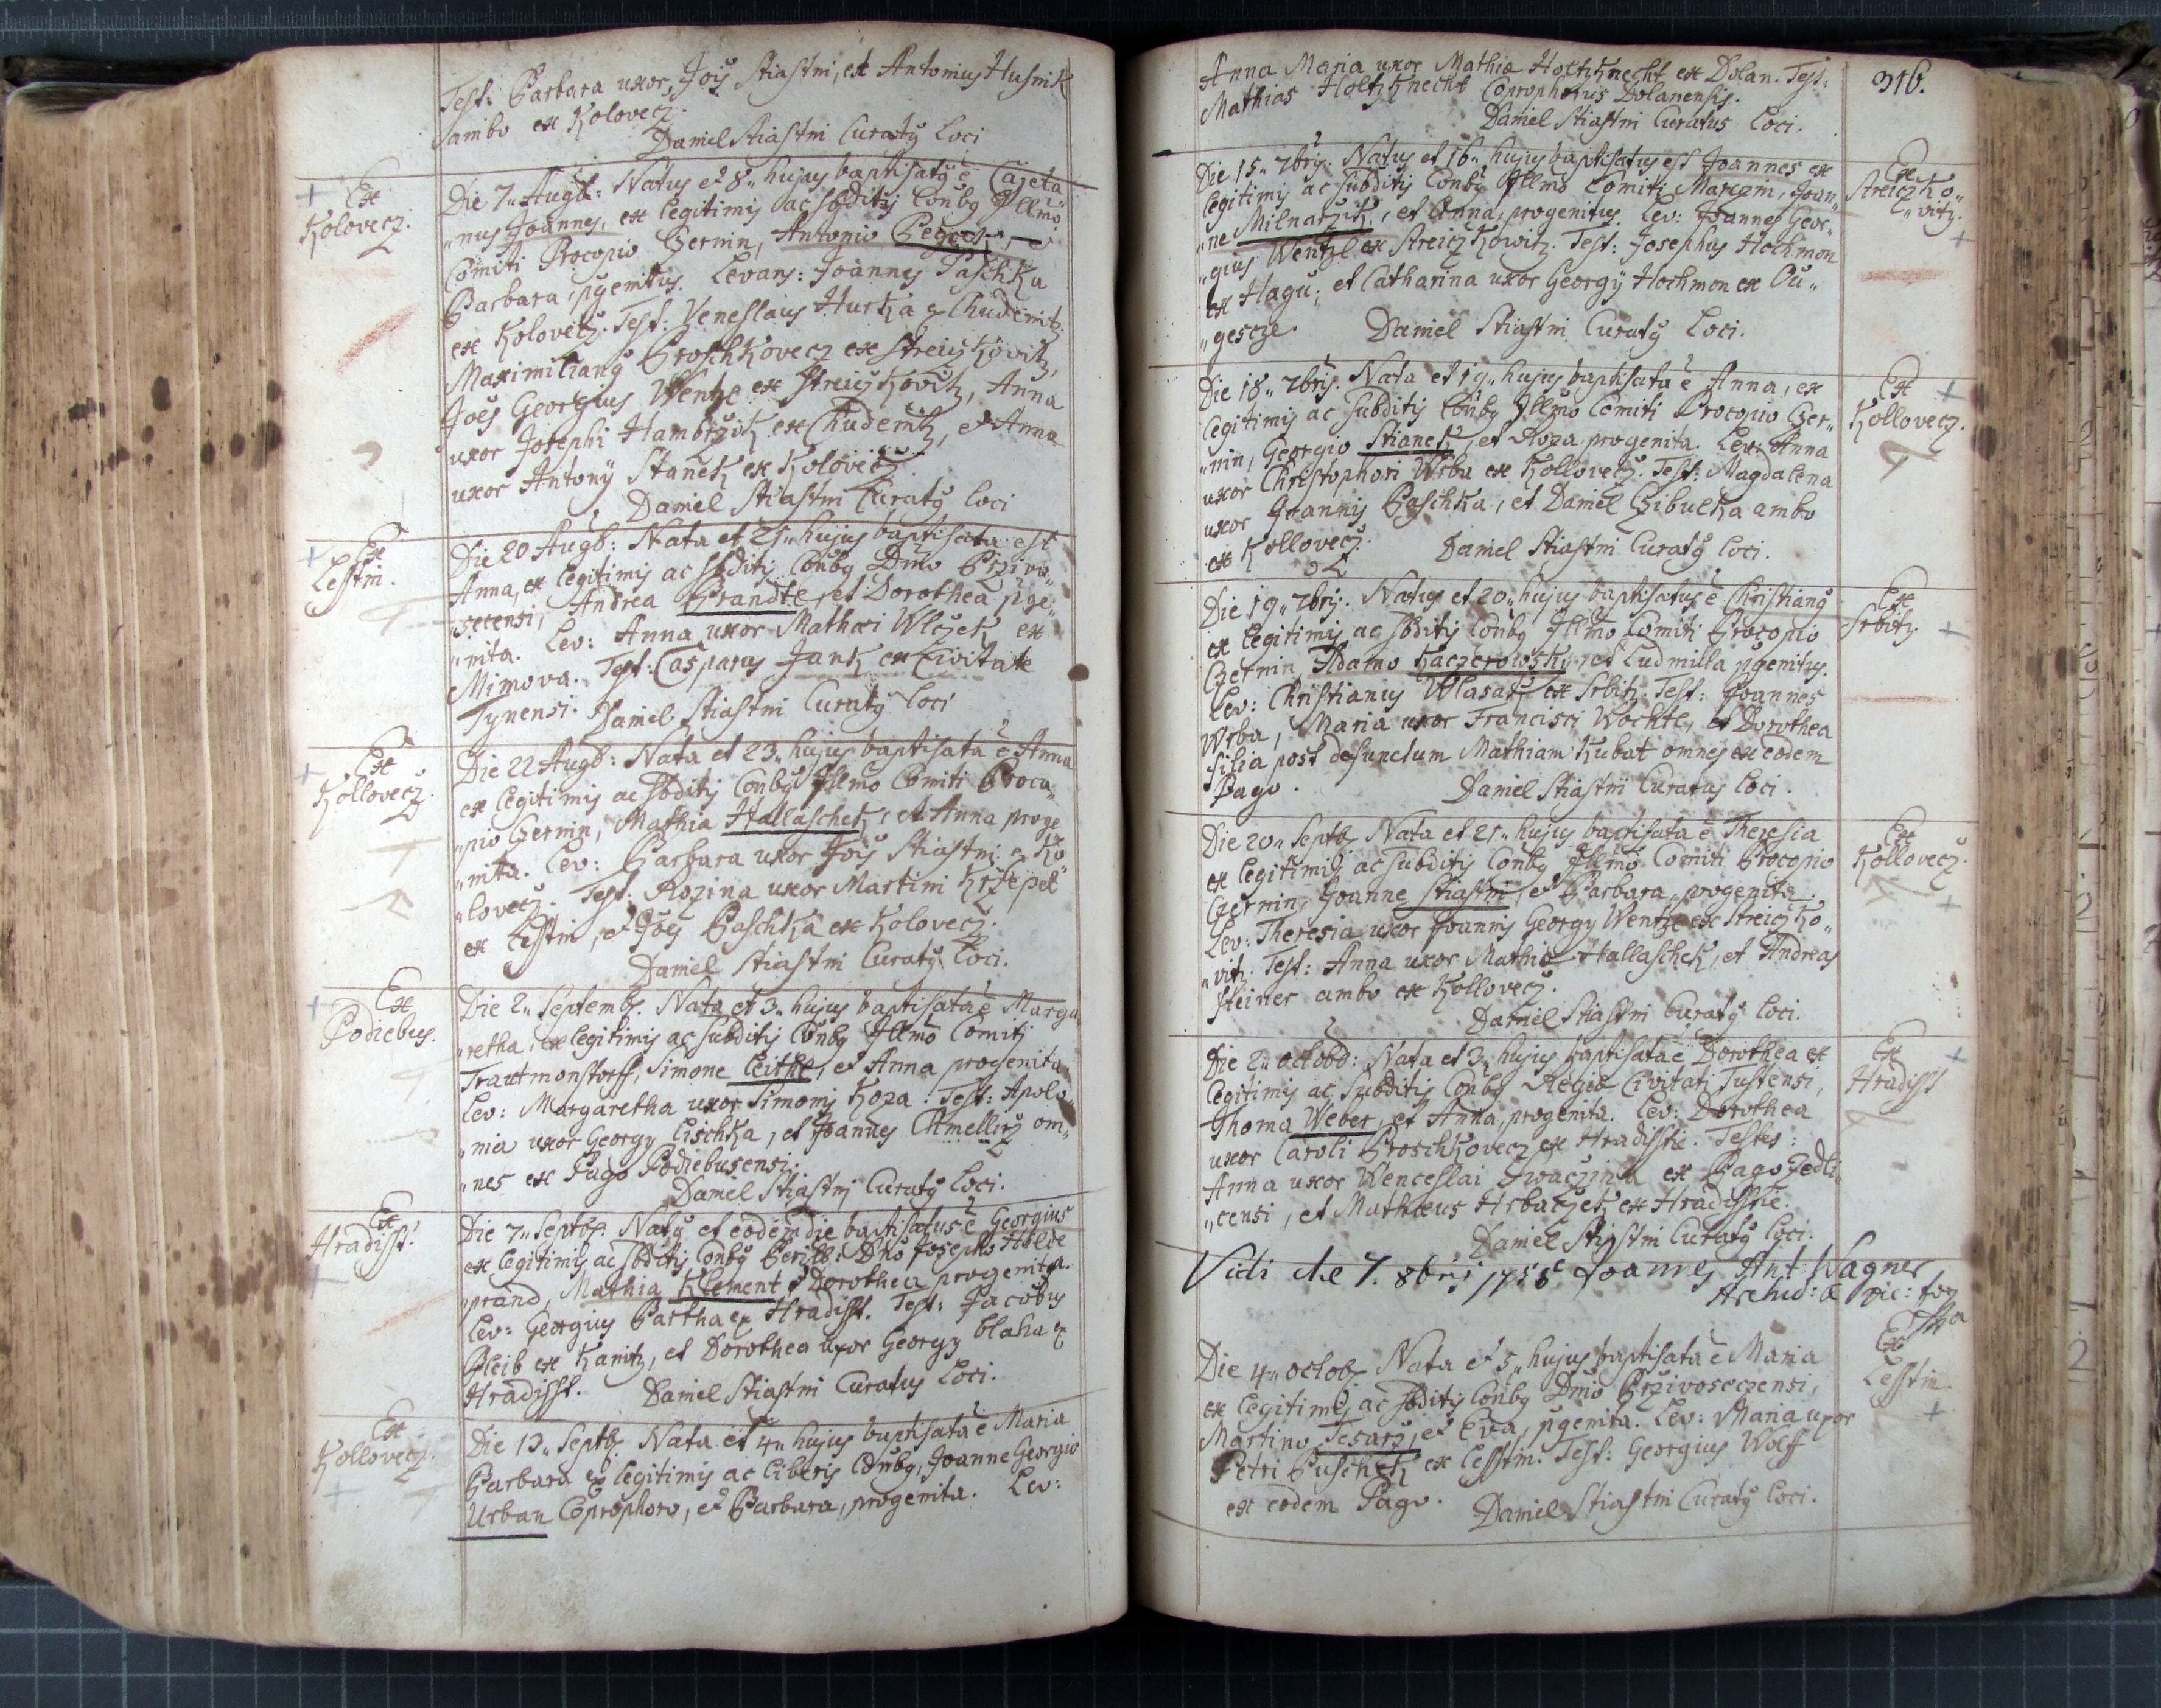 Test: Barbara uxor Jois Stiastni, et Antonius Husnik
ambo ex Kolovecz.
Daniel Stiastni Curatus Loci
Ex
Kolovecz.
Die 7. Augst: Natus et 8. hujus baptisatus e Cajeta„
„nus Joannes, ex legitimis ac sbditis Conbg Illmo
Comiti Procopio Czernin, Antonio
Barbara pgenitus. Levans: Joannes Paschka
ex Kolovecz. Test: Veneslaus Hurka ex Chudenitz.
Maximilianus Broschkovecz ex Streiczkovitz,
Joes Georgius Wentzl ex Streiczkovitz, Anna
uxor Josephi Hambrzik ex Chudenitz, et Anna
uxor Antony Stanek ex Kolovecz.
Daniel Stiastni Curatus Loci
Ex
Lestin.
Die 20 Augb: Nata et 21. hujus baptisata est
Anna, ex legitimis ac sbditis Conbg Dno Przivo„
secensi, Andrea Brandte, et Dorothea pge„
„nita. Lev: Anna uxor Mathaei Wlczek ex
Mimova. Test: Casparus Jank ex Civitate
Tynensi. Daniel Stiastni Curatus Loci
Ex
Kollovecz.
Die 22 Augb: Nata et 23. hujus baptisata e Anna
ex legitimis ac sbditis Conbg Illmo Comiti Proco„
„pio Czernin, Mathia Hallaschek, et Anna proge
„nita. Lev: Barbara uxor Jois Stiastni ex Ko„
„lovecz. Test: Rozina uxor Martini Krzepel
ex Lestin, et Joes Paschka ex Kolovecz.
Daniel Stiastni Curatus Loci.
Ex
Podiebus.
Die 2. Septemb. Nata et 3. hujus baptisata e Marga„
„retha, ex legitimis ac subditis Conbg Illmo Comiti
Trautmonstorff, Simone Leithl, et Anna progenita.
Lev: Margaretha uxor Simonis Koza. Test: Apolo„
„nia uxor Georgy Lischka, et Joannes om„
„nes ex Pago Podiebusensi.
Daniel Stiastni Curatus Loci.
Ex
Hradist.
Die 7. Septb. Natus et eodem die baptisatus e Georgius
ex legitimis ac sbditis Conbg Perill: Dno Josepho Hilde
„prand, Mathia Klement et Dorothea progenitus.
Lev: Georgius Bartha ex Hradist. Test: Jacobus
Bleib ex Kanitz, et Dorothea uxor Georgy blaha ex
Hradisst. Daniel Stiastni Curatus Loci.
Ex
Kollovecz.
Die 13. Septb. Nata et 14. hujus baptisata e Maria
Barbara ex legitimis ac liberis Conbg, Joanne Georgio
Urban Coprophoro, et Barbara, progenita. Lev:
316.
Anna Maria uxor Mathiae Holtzknecht ex Dolan. Test:
Mathias Holtzknecht Coprophorus Dolanensis.
Daniel Stiastni Curatus Loci.
Ex
Streiczko„
„vitz.
Die 15. 7bris. Natus et 16. hujus baptisatus est Joannes ex
legitimis ac subditis Conbg Illmo Comiti Marzin, Joan„
„ne Milnarzik, et Anna, progenitus. Lev: Joannes Geor„
„gius Wentzl ex Streiczkowitz. Test: Josephus Hochmon
ex Hagu; et Catharina uxor Georgy Hochmon ex Ou„
„gescze. Daniel Stiastni Curatus Loci.
Ex
Kollovecz.
Die 18. 7bris. Nata et 19. hujus baptisata e Anna, ex
legitimis ac subditis Conbg Illmo Comiti Procopio Czer„
„nin, Georgio Stianek, et Roza progenita. Lev: Anna
uxor Christophori Wrba ex Kollovecz. Test: Magdalena
uxor Joannis Paschka, et Daniel Czibulka ambo
ex Kollovecz. Daniel Stiastni Curatus Loci.
Ex
Srbitz.
Die 19. 7bris. Natus et 20. hujus baptisatus e Christianus
ex legitimis ac sbditis Conbg Illmo Comiti Procopio
Czernin Adamo Kaczerowsky, et Ludmilla pgenitus.
Lev: Christianus Wlasak ex Srbitz. Test: Joannes
Wrba, Maria uxor Francisci Wochte, et Dorothea
filia post defunctum Mathiam Kubat omnes ex eodem
Pago. Daniel Stiastni Curatus Loci.
Ex
Kollovecz.
Die 20. Septb. Nata et 21. hujus baptisata e Theresia
ex legitimis ac subditis Conbg Illmo Comiti Procopio
Czernin, Joanne Stiastni, et Barbara, progenita.
Lev: Theresia uxor Joannis Georgy Wentzl ex Streiczko„
„vitz. Test: Anna uxor Mathiae Hallaschek, et Andreas
Steiner ambo ex Kollovecz.
Daniel Stiastni Curatus Loci.
Ex
Hradisst
Die 2. octobr: Nata et 3. hujus baptisata e Dorothea ex
legitimis ac subditis Conbg Regiae Civitati Tustensi,
Thoma Weber, et Anna, progenita. Lev: Dorothea
uxor Caroli Broschkovecz ex Hradistie. Testes:
Anna uxor Wenceslai Swaczina ex Pago Zedli„
„censi, et Mathaeus Hrbaczek ex Hradisstie.
Daniel Stiastni Curatus Loci.
Vidi die 7. 8bris 1758 Joannes Ant: Wagner
Archid: & vic: for
Ex
Lesstin.
Die 4. octob. Nata et 5. hujus baptisata e Maria
ex legitimis ac sbditis Conbg Dno Przivoseczensi,
Martino Tesarz, et Eva, pgenita. Lev: Maria uxor
Petri Puschek ex Lesstin. Test: Georgius Wolff
ex eodem Pago. Daniel Stiastni Curatus Loci.